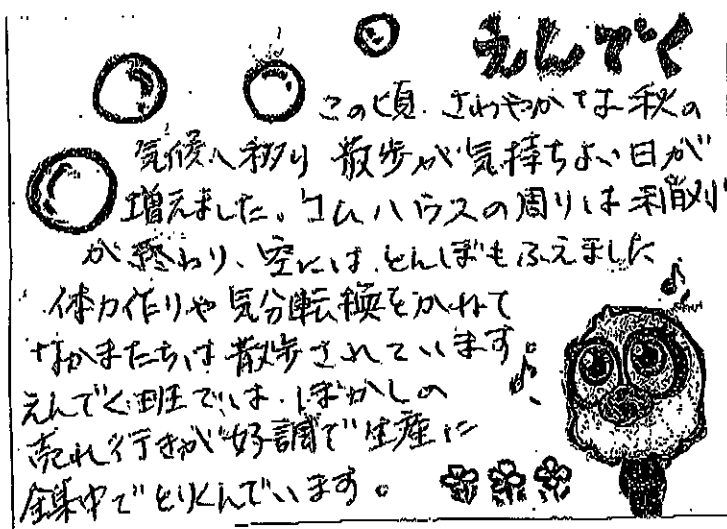 えんでく
この頃、さわやかな秋の
気候へ移り 散歩が気持ちよい日が
増えました。コムハウスの周りは稲刈り
が終わり、空には、とんぼもふえました
体力作りや気分転換をかねて
なかまたちは散歩されています。
えんでく班では、ぼかしの
売れ行きが好調で生産に
集中でとりくんでいます。